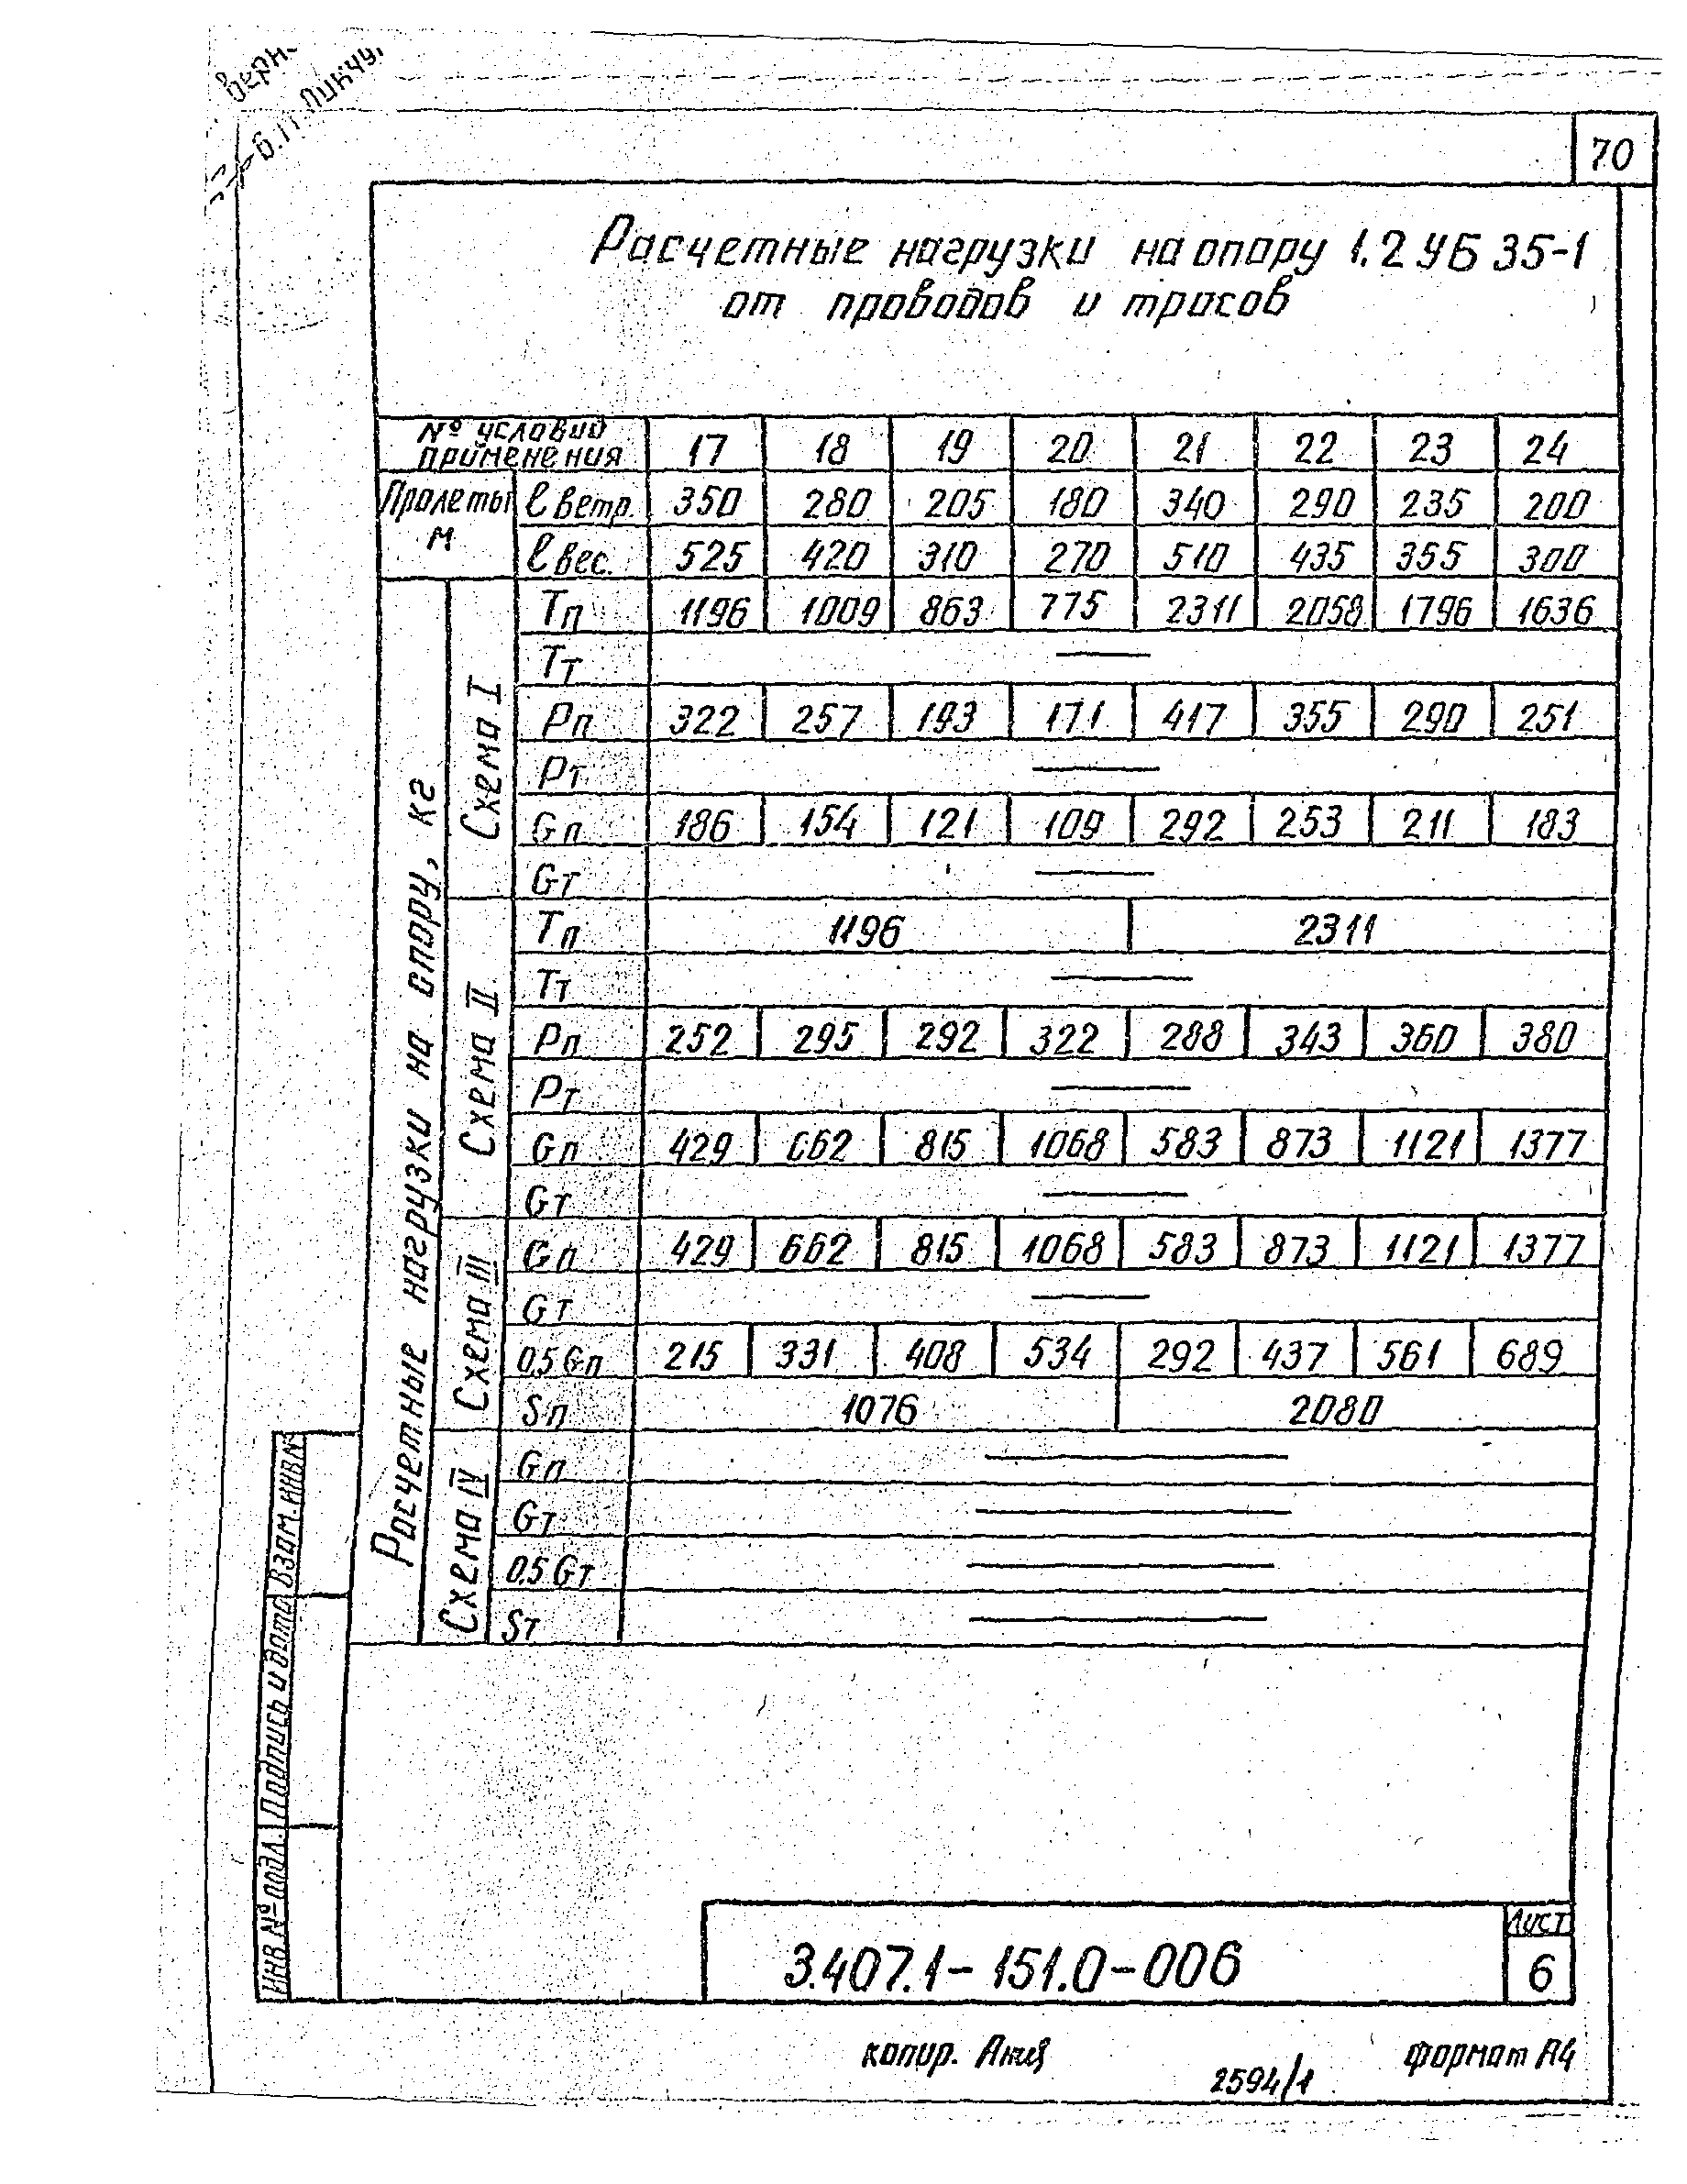 70
Расчетные нагрузки на опору 1.2 УБ 35-1
от проводов и тросов
№ условий применения 17 18 19 20 21 22 23 24
Пролеты м
ℓ ветр. 350 280 205 180 340 290 235 200
ℓ вес. 525 420 310 270 510 435 355 300
Расчетные нагрузки на опору, кг
Схема I
Тп 1196 1009 863 775 2311 2058 1796 1636
Тт —
Рп 322 257 193 171 417 355 290 251
Рт —
Gп 186 154 121 109 292 253 211 183
Gт —
Схема II
Тп 1196 2311
Тт —
Рп 252 295 292 322 288 343 360 380
Рт —
Gп 429 662 815 1068 583 873 1121 1377
Gт —
Схема III
Gп 429 662 815 1068 583 873 1121 1377
Gт —
0,5 Gп 215 331 408 534 292 437 561 689
Sп 1076 2080
Схема IV
Gп —
Gт —
0,5 Gт —
Sт —
Взам. инв №
Подпись и дата
Инв № подл.
3.407.1-151.0-006
Лист
6
копир. формат А4
2594/1